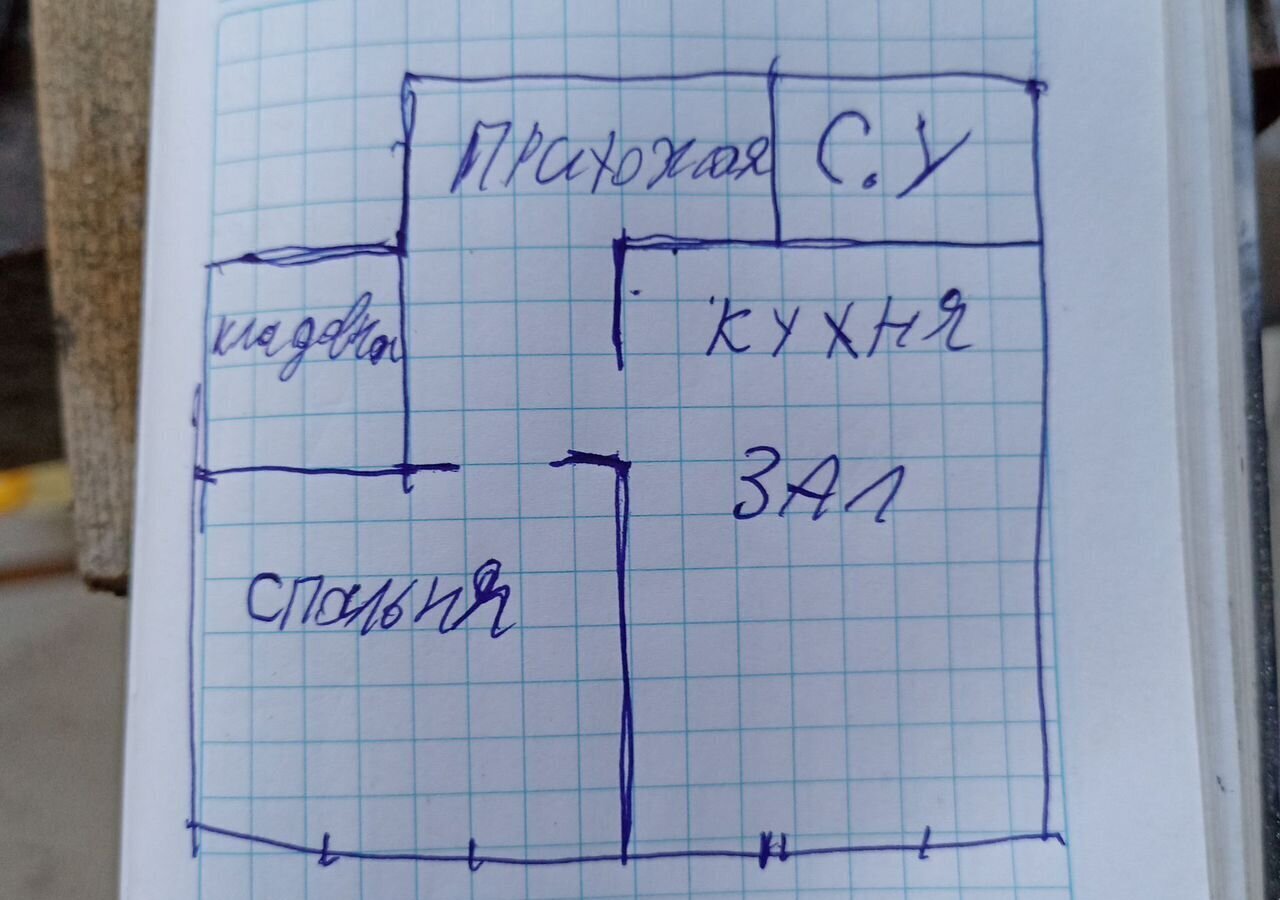 Прихожая
С.У
кладовка
КУХНЯ
ЗАЛ
спальня